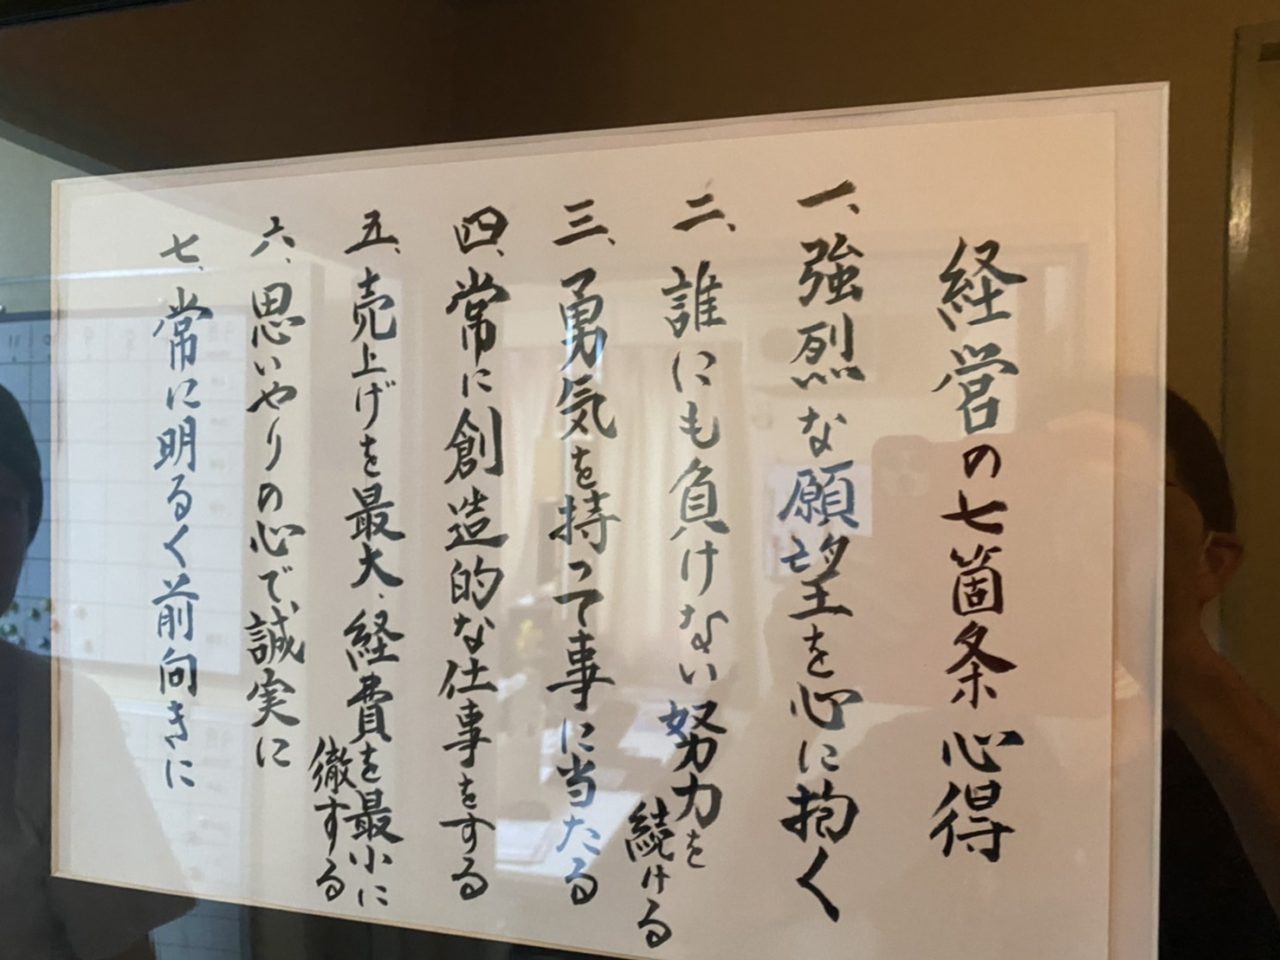 経営の七箇条心得
一、強烈な願望を心に抱く
二、誰にも負けない努力を
続ける
三、勇気を持って事に当たる
四、常に創造的な仕事をする
五、売上げを最大、経費を最小に
徹する
六、思いやりの心で誠実に
七、常に明るく前向きに